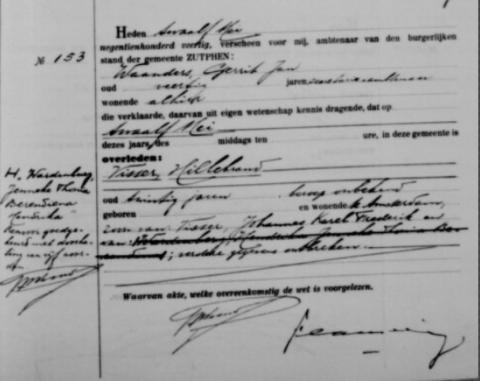 № 153
Heden twaalf Mei
negentienhonderd veertig, verscheen voor mij, ambtenaar van den burgerlijken
stand der gemeente ZUTPHEN:
Waanders, Gerrit Jan
oud veertig jaren,
wonende alhier
die verklaarde, daarvan uit eigen wetenschap kennis dragende, dat op
twaalf Mei
dezes jaars, des middags ten ure, in deze gemeente is
overleden:
Visser, Hillebrand
oud twintig jaren beroep onbekend
geboren en wonende te Amsterdam,
zoon van Visser, Johannes Karel Frederik en
van: Wardenburg, Hendrika Jenneke Thonia Be
; verdere gegevens ontbreken.
H. Wardenburg,
Jenneke Thonia
Berendiena
Hendrika
Waarvan akte, welke overeenkomstig de wet is voorgelezen.